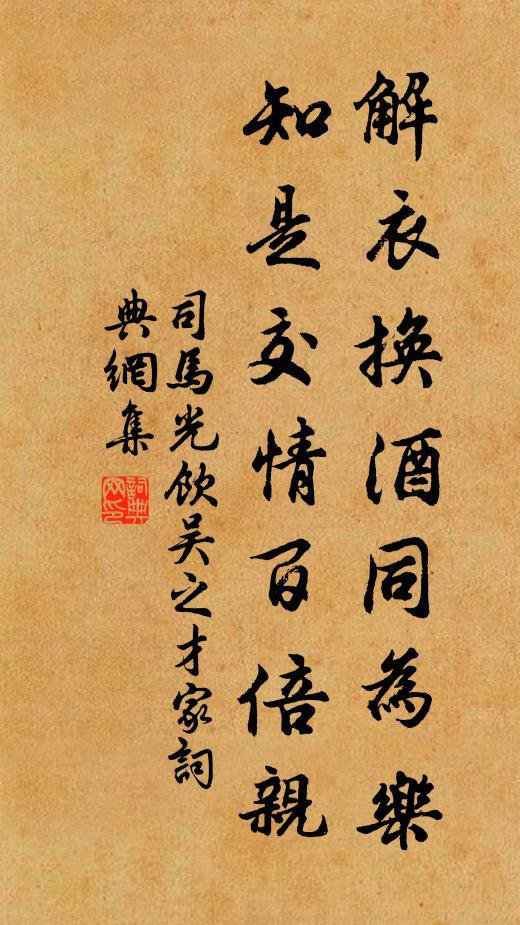 解衣換酒同為樂
知是交情百倍親
司馬光飲吴之才家詞
典網集
詞典
网印